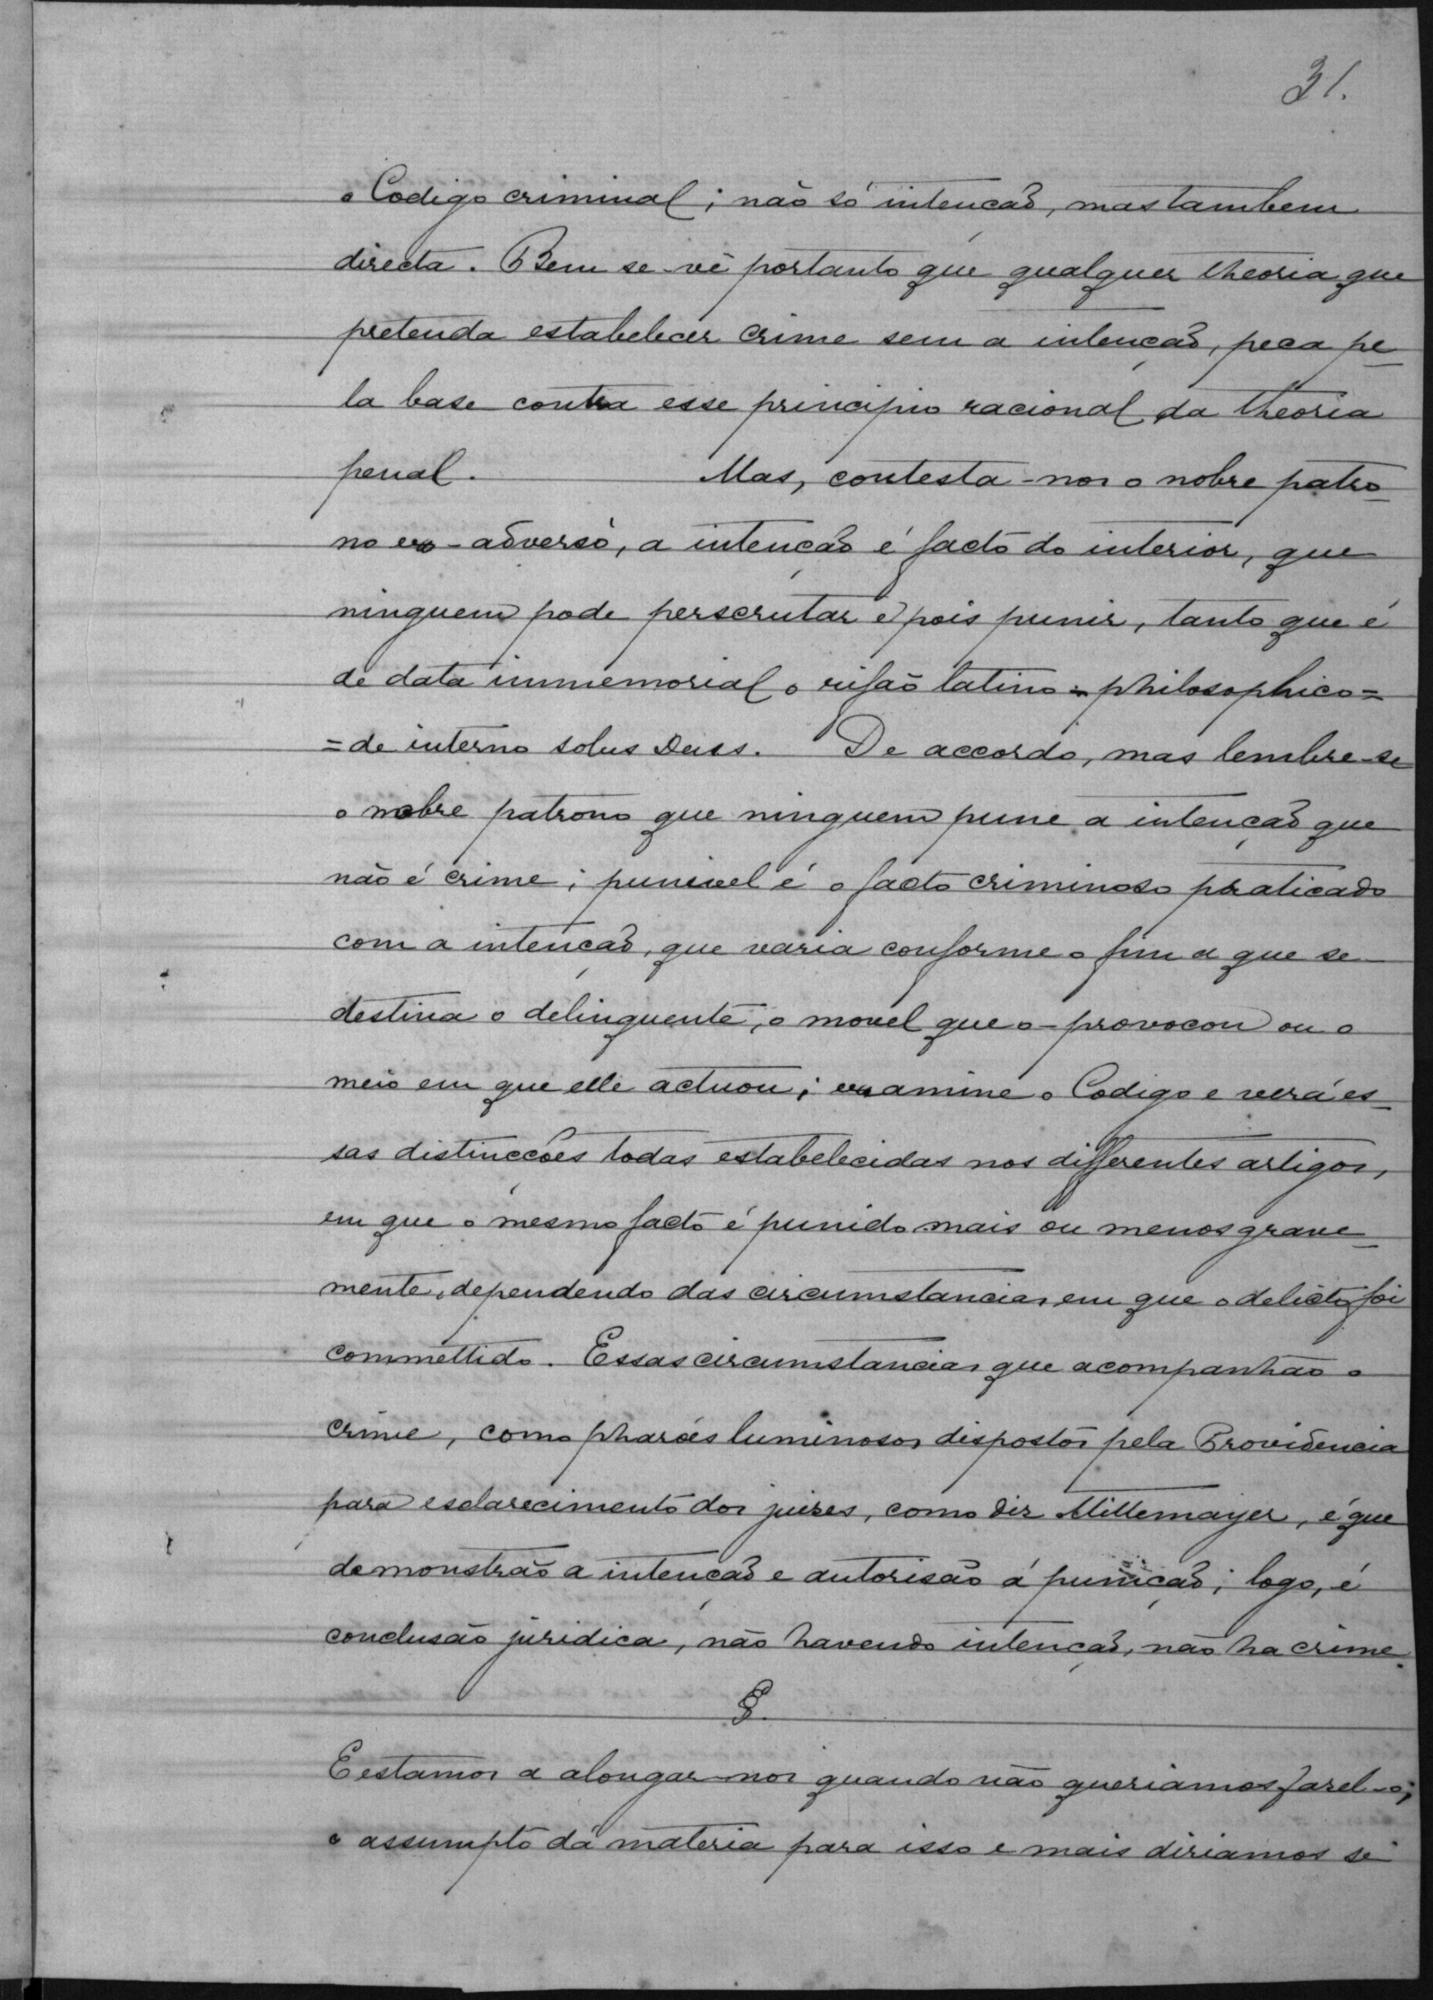 31.
o Codigo criminal; não só intenção, mas tambem
directa. Bem se vê portanto que qualquer theoria que
pretenda estabelecer crime sem a intenção, peca pe-
la base contra esse principio racional da theoria
penal. Mas, contesta-nos o nobre patro-
no ex-adverso, a intenção é facto do interior, que
ninguem pode perscrutar e pois punir, tanto que é
de data immemorial o rifão latino-philosophico=
=de interno solus Deus. De accordo, mas lembre-se
o nobre patrono que ninguem pune a intenção que
não é crime; punivel é o facto criminoso praticado
com a intenção, que varia conforme o fim a que se
destina o delinquente, o movel que o-provocou ou o
meio em que elle actuou; examine o Codigo e verá es-
sas distincções todas estabelecidas nos differentes artigos,
em que o mesmo facto é punido mais ou menos grave-
mente, dependendo das circumstancias em que o delicto foi
commettido. Essas circumstancias que acompanhão o
crime, como pharóes luminosos dispostos pela Providencia
para esclarecimento dos juizes, como diz Mittemayer, é que
demonstrão a intenção e autorisão á punição; logo, é
conclusão juridica, não havendo intenção, não ha crime.
§.
E estamos a alongar-nos quando não queriamos fazel-o;
o assumpto dá materia para isso e mais diriamos se